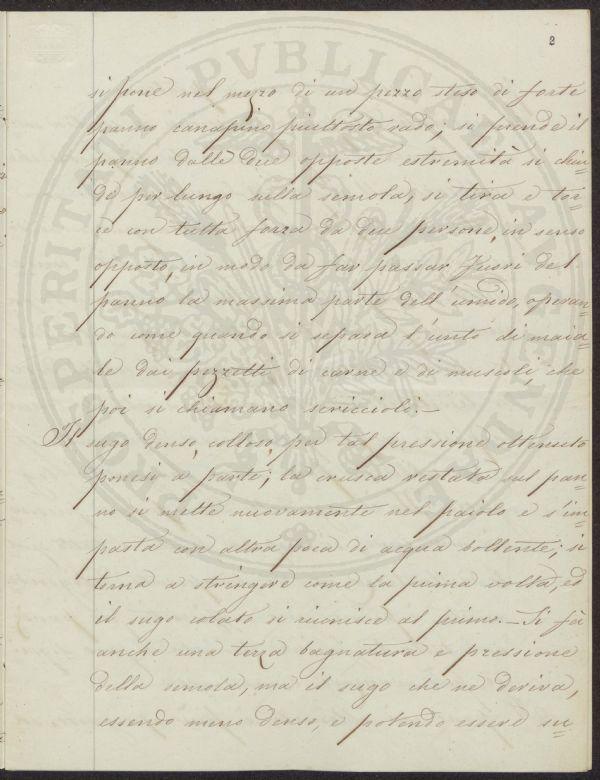 2
si pone nel mezzo di un pezzo steso di forte
panno canapino piuttosto rado; si prende il
panno dalle due opposte estremità si chiu=
de per lungo sulla semola, si tira e tor=
ce con tutta forza da due persone, in senso
opposto, in modo da far passar fuori del
panno, la massima parte dell'umido, operan=
do come quando si separa l'unto di maia=
le dai pezzetti di carne e di muscoli, che
poi si chiamano sriccioli.—
Il sugo denso, colloso, per tal pressione ottenuto
ponesi a parte; la crusca restata sul pan=
no si mette nuovamente nel paiolo e s'im=
pasta con altra poca di acqua bollente; si
torna a stringere come la prima volta, ed
il sugo colato si riunisce al primo.— Si fà
anche una terza bagnatura e pressione
della semola, ma il sugo che ne deriva,
essendo meno denso, e potendo essere su=
PROSPERITATI PVBLICAE AVGENDAE